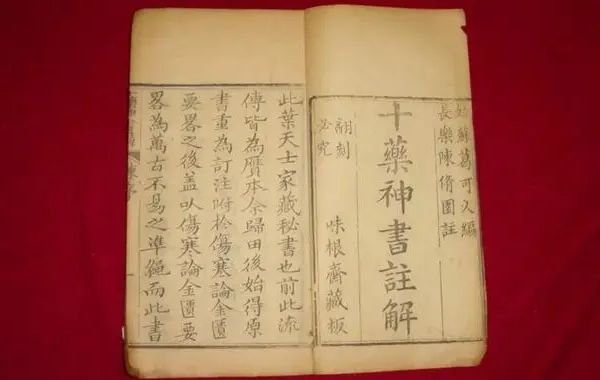 姑蘇葛可久編
長樂陳脩園註
十藥神書註解
味根齋藏板
翻刻
必究
此葉天士家藏秘書也前此流
傳皆為贗本余歸田後始得原
書重為訂注附於傷寒論金匱
要畧之後蓋以傷寒論金匱要
畧為萬古不易之準繩而此書